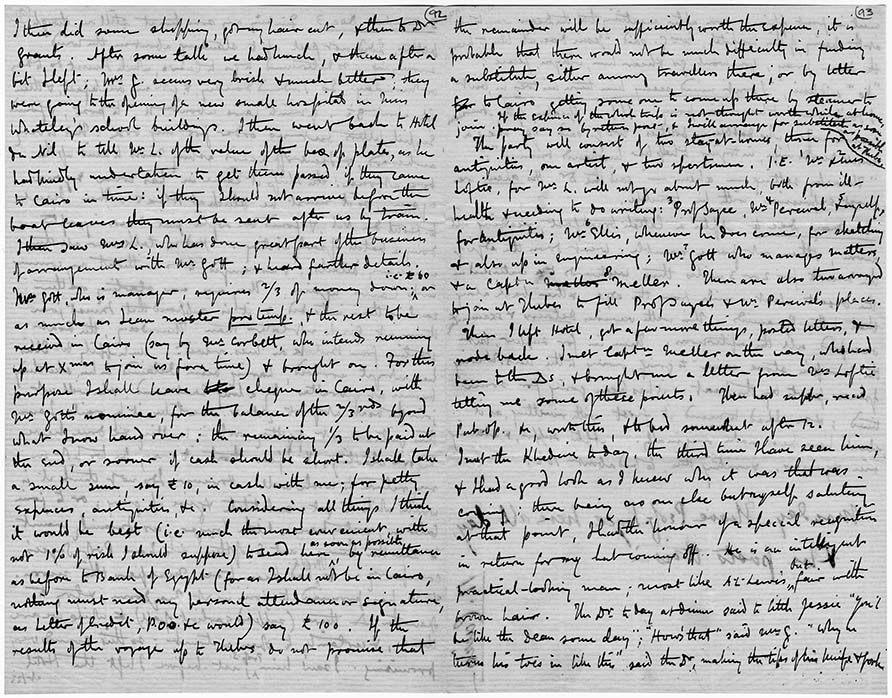 92
I then did some shopping, got my hair cut, & then to Dr
Grants. After some talk we had lunch, & there after a
bit I left; Mrs G. seems very brisk & much better; they
were going to the opening of a new small hospital in Miss
Whateley's school buildings. I then went back to Hotel
du Nil to tell Mr L. of the value of the box of plates, as he
had kindly undertaken to get them passed if they came
to Cairo in time: if they should not arrive before the
boat leaves they must be sent after us by train.
I then saw Mrs L. who has done great part of the business
of arrangement with Mr Gott; & heard farther details.
i.e. £60
Mr Gott, who is manager, requires 2/3 of money down; or
as much as I can muster pro temp. & the rest to be
received in Cairo (say by Mr Corbett, who intends running
up at Xmas to join us for a time) & brought on. For this
purpose I shall leave cheque in Cairo, with
Mr Gott's nominee, for the balance of the 2/3rds beyond
what I now hand over; the remaining 1/3 to be paid at
the end, or sooner if cash should be short. I shall take
a small sum, say £10, in cash with me; for petty
expences, antiquities, &c. Considering all things I think
it would be best (i.e. much the most convenient with
not 1% of risk I should suppose) to send here as soon as possible by remittance
as before to Bank of Egypt (for as I shall not be in Cairo,
nothing must need my personal attendance or signature,
as letter of credit, P.O.O. &c would) say £100. If the
results of the voyage up to Thebes, do not promise that
93
the remainder will be sufficiently worth the expence, it is
probable that there would not be much difficulty in finding
a substitute, either among travellers there, or by letter
to Cairo getting some one to come up there by steamer to
join. If the expence of the whole trip is not thought worth while at home,
pray say so by return post, & I will arrange for substitute as soon as possible at Thebes
The party will consist of two stay-at-homes, three for
antiquities, one artist, & two sportsmen. I.E. Mr & Mrs
Loftie, for Mr L. will not go about much, both from ill-
health & needing to do writing: 3 Prof Sayce, Mr 4 Percival, & myself 5,
for antiquities; Mr 6 Ellis, whenever he does come, for sketching
& also up in engineering; Mr 7 Gott who manages matters,
& a Captn 8 Meller. There are also two arranged
to join at Thebes to fill Prof Sayce's & Mr Percival's places.
Then I left Hotel, got a few more things, posted letters, &
rode back. I met Captn Meller on the way, who had
been to the Drs, & brought me a letter from Mrs Loftie
telling me some of these points. Then had supper, read
Put up. &c, wrote this, & to bed somewhat after 12.
I met the Khedive to day, the third time I have seen him,
& I had a good look as I knew who it was that was
coming; there being no one else but myself saluting
at that point, I had the honour of a special recognition
in return for my hat coming off. He is an intelligent
practical-looking man; most like Al. Lewis, but fair with
brown hair. The Dr. to day at dinner said to little Jessie "You'll
be like the Dean some day"; "Hows that" said Mrs G. "Why he
turns his toes in like this" said the Dr, making the tips of his knife & forks